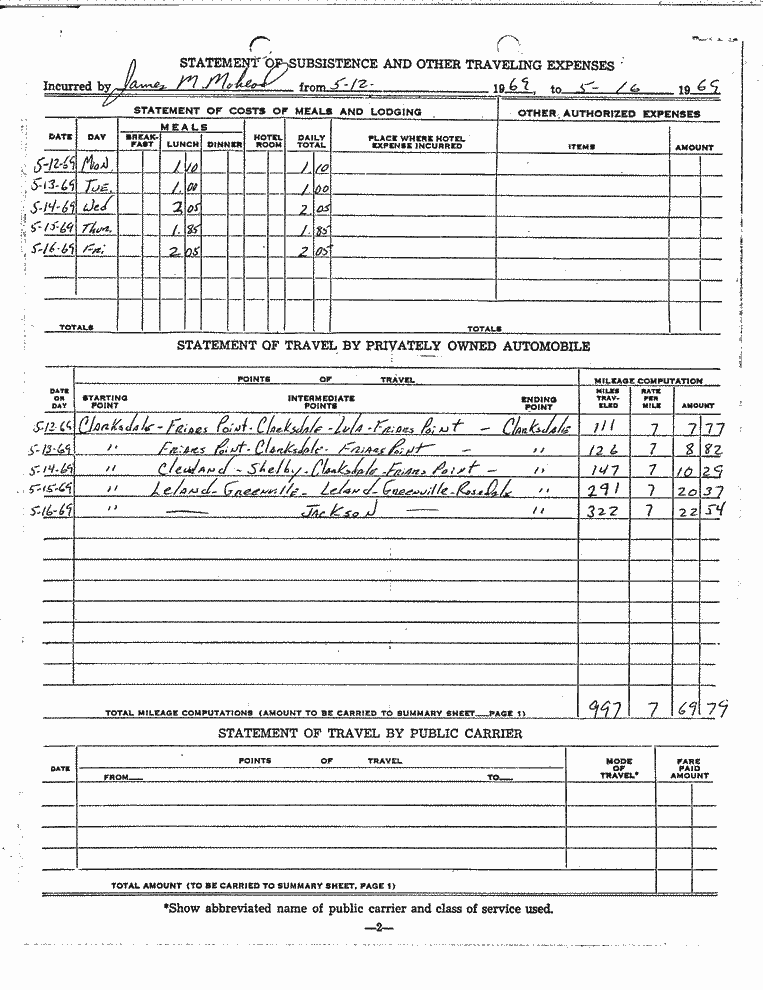 STATEMENT OF SUBSISTENCE AND OTHER TRAVELING EXPENSES
Incurred by James M. Mohead from 5-12- 1969, to 5- 16 1969
STATEMENT OF COSTS OF MEALS AND LODGING OTHER AUTHORIZED EXPENSES
MEALS
DATE DAY BREAK-FAST LUNCH DINNER HOTEL ROOM DAILY TOTAL PLACE WHERE HOTEL EXPENSE INCURRED ITEMS AMOUNT
5-12-69 Mon. 1 10 1 10
5-13-69 Tue. 1.00 1 00
5-14-69 Wed 2 05 2 05
5-15-69 Thur. 1.85 1.85
5-16-69 Fri. 2 05 2 05
TOTALS TOTALS
STATEMENT OF TRAVEL BY PRIVATELY OWNED AUTOMOBILE
POINTS OF TRAVEL MILEAGE COMPUTATION
DATE OR DAY STARTING POINT INTERMEDIATE POINTS ENDING POINT MILES TRAV-ELED RATE PER MILE AMOUNT
5-12-69 Clarksdale - Friars Point - Clarksdale - Lula - Friars Point - Clarksdale 111 7 7 77
5-13-69 " Friars Point - Clarksdale - Friars Point - " 126 7 8 82
5-14-69 " Cleveland - Shelby - Clarksdale - Friars Point - " 147 7 10 29
5-15-69 " Leland - Greenville - Leland - Greenville - Rosedale " 291 7 20 37
5-16-69 " — Jackson — " 322 7 22 54
TOTAL MILEAGE COMPUTATIONS (AMOUNT TO BE CARRIED TO SUMMARY SHEET—PAGE 1) 997 7 69 79
STATEMENT OF TRAVEL BY PUBLIC CARRIER
DATE POINTS OF TRAVEL MODE OF TRAVEL* FARE PAID AMOUNT
FROM— TO—
TOTAL AMOUNT (TO BE CARRIED TO SUMMARY SHEET, PAGE 1)
*Show abbreviated name of public carrier and class of service used.
—2—